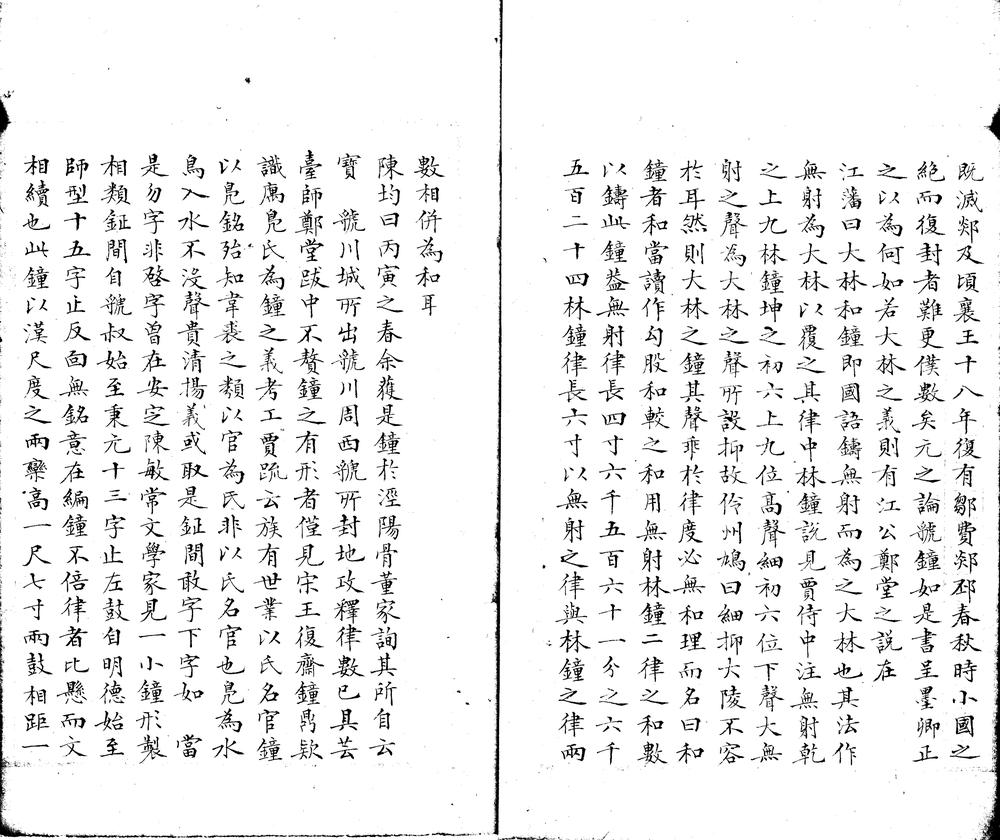 既滅郯及頃襄王十八年復有鄒費郯邳春秋時小國之
絕而復封者難更僕數矣元之論虢鐘如是書呈墨卿正
之以為何如若大林之義則有江公鄭堂之說在
江藩曰大林和鐘即國語鑄無射而為之大林也其法作
無射為大林以覆之其律中林鐘說見賈侍中注無射乾
之上九林鐘坤之初六上九位高聲細初六位下聲大無
射之聲為大林之聲所設抑故伶州鳩曰細抑大陵不容
於耳然則大林之鐘其聲乖於律度必無和理而名曰和
鐘者和當讀作勾股和較之和用無射林鐘二律之和數
以鑄此鐘葢無射律長四寸六千五百六十一分之六千
五百二十四林鐘律長六寸以無射之律與林鐘之律兩
數相併為和耳
陳均曰丙寅之春余蓰是鐘於涇陽骨董家詢其所自云
寶　虢川城所出虢川周西虢所封地政釋律數已具芸
臺師鄭堂跋中不贅鐘之有形者僅見宋王復齋鐘鼎欵
識厲鳧氏為鐘之義考工賈疏云族有世業以氏名官鐘
以鳧銘殆知韋裘之類以官為氏非以氏名官也鳧為水
鳥入水不沒聲貴清揚義或取是鉦間敢字下字如　當
是勿字非啓字曾在安定陳敏常文學家見一小鐘形製
相類鉦間自虢叔始至秉元十三字止左鼓自明德始至
師型十五字止反面無銘意在編鐘不倍律者比懸而文
相續也此鐘以漢尺度之兩欒高一尺七寸兩鼓相距一